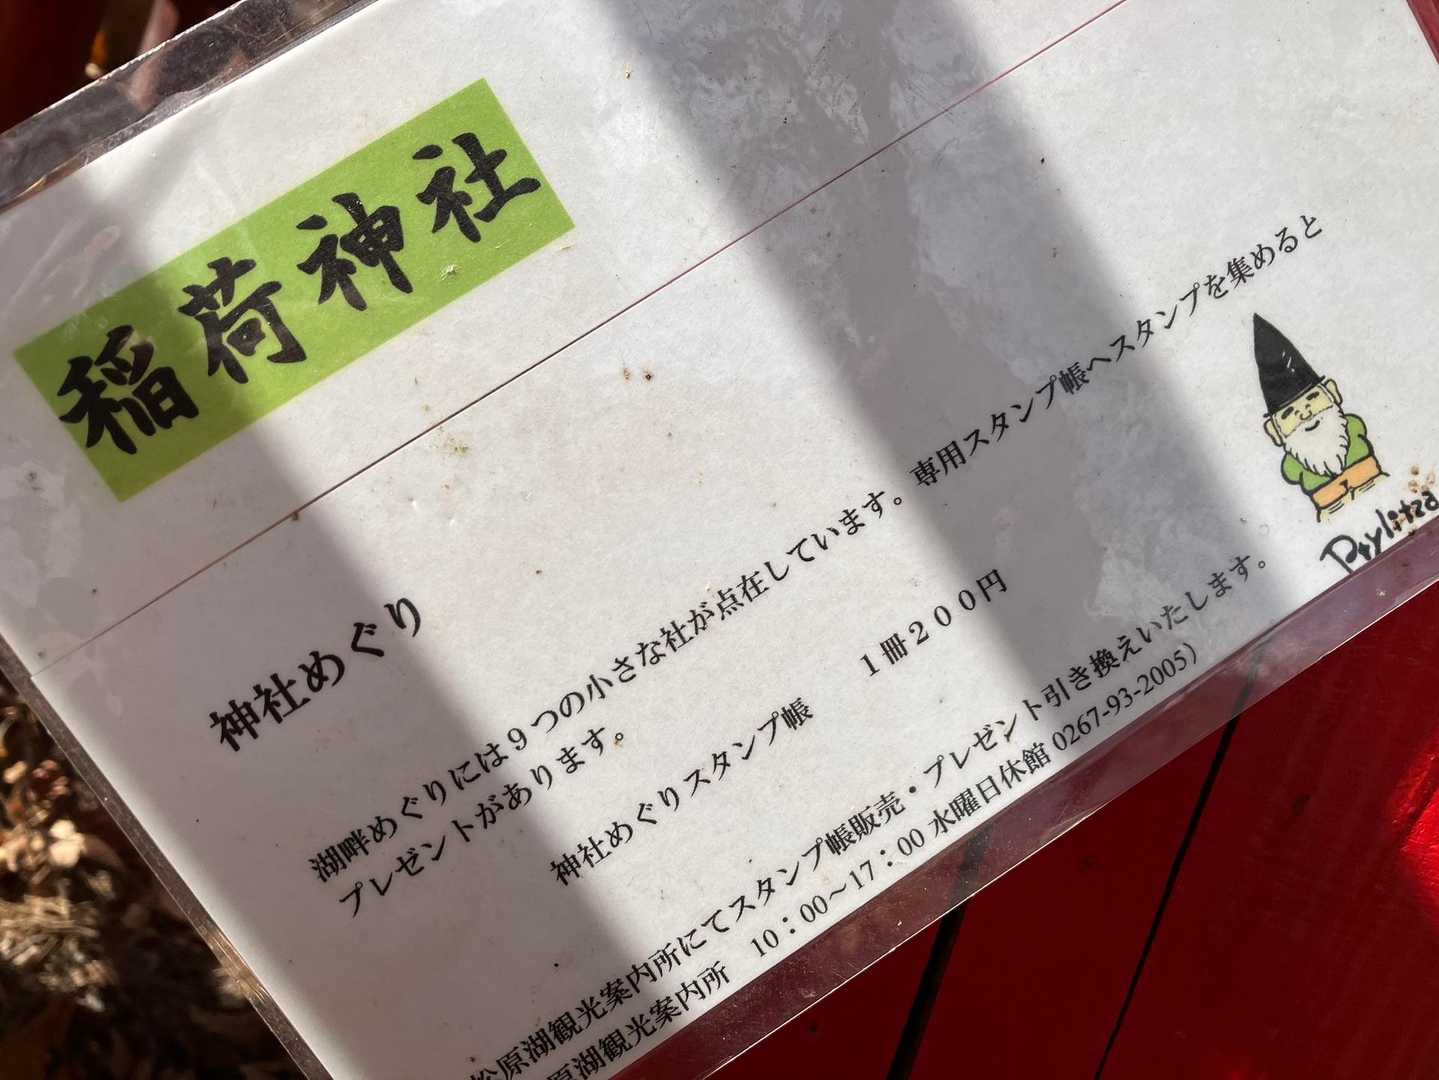 稲荷神社
神社めぐり
湖畔めぐりには９つの小さな社が点在しています。専用スタンプ帳へスタンプを集めると
プレゼントがあります。
神社めぐりスタンプ帳 １冊２００円
松原湖観光案内所にてスタンプ帳販売・プレゼント引き換えいたします。
原湖観光案内所 10：00～17：00 水曜日休館 0267-93-2005）